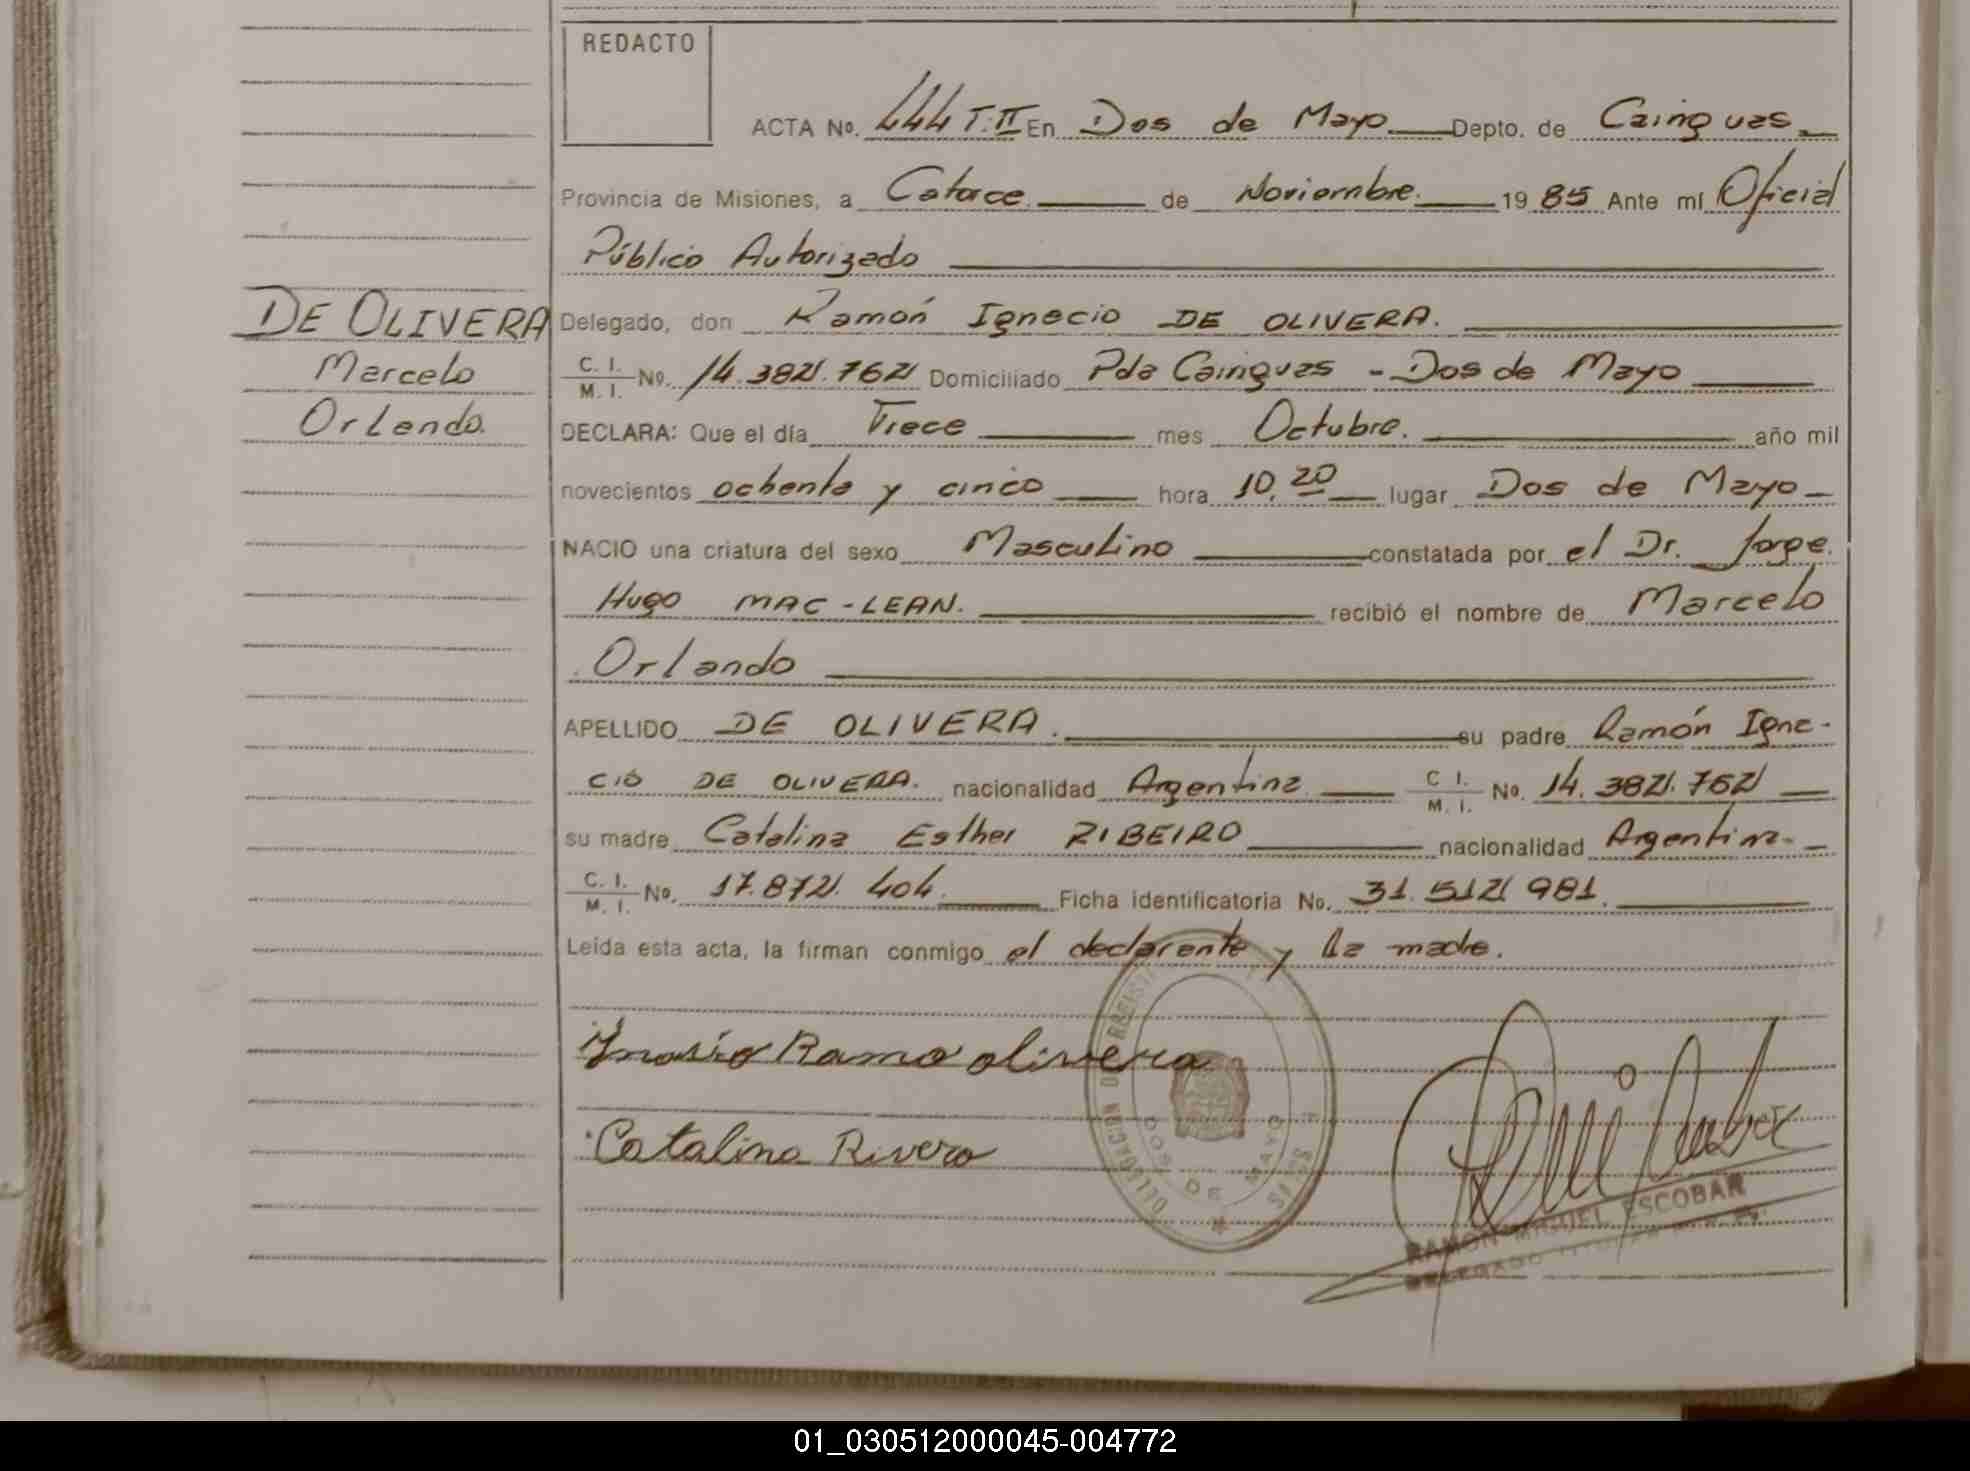 REDACTO
ACTA No. 444 T: II En Dos de Mayo Depto. de Cainguas
Provincia de Misiones, a Catorce de Noviembre. 1985 Ante mí Oficial
Público Autorizado
DE OLIVERA Delegado, don Ramón Ignacio DE OLIVERA.
Marcelo C. I. / M. I. No. 14.382.762 Domiciliado Pda Cainguas - Dos de Mayo
Orlando. DECLARA: Que el día Trece mes Octubre. año mil
novecientos ochenta y cinco hora 10,20 lugar Dos de Mayo
NACIO una criatura del sexo Masculino constatada por el Dr. Jorge.
Hugo MAC-LEAN. recibió el nombre de Marcelo
Orlando
APELLIDO DE OLIVERA. su padre Ramón Igna-
cio DE OLIVERA. nacionalidad Argentina C I. / M. I. No. 14.382.762
su madre Catalina Esther RIBEIRO nacionalidad Argentina
C. I. / M. I. No. 17.872.404. Ficha identificatoria No. 31.512.981.
Leída esta acta, la firman conmigo el declarante y la madre.
Ramo olivera
Catalina Rivero
DELEGACION DOS DE MAYO
RAMON MIGUEL ESCOBAR
DELEGADO
01_030512000045-004772